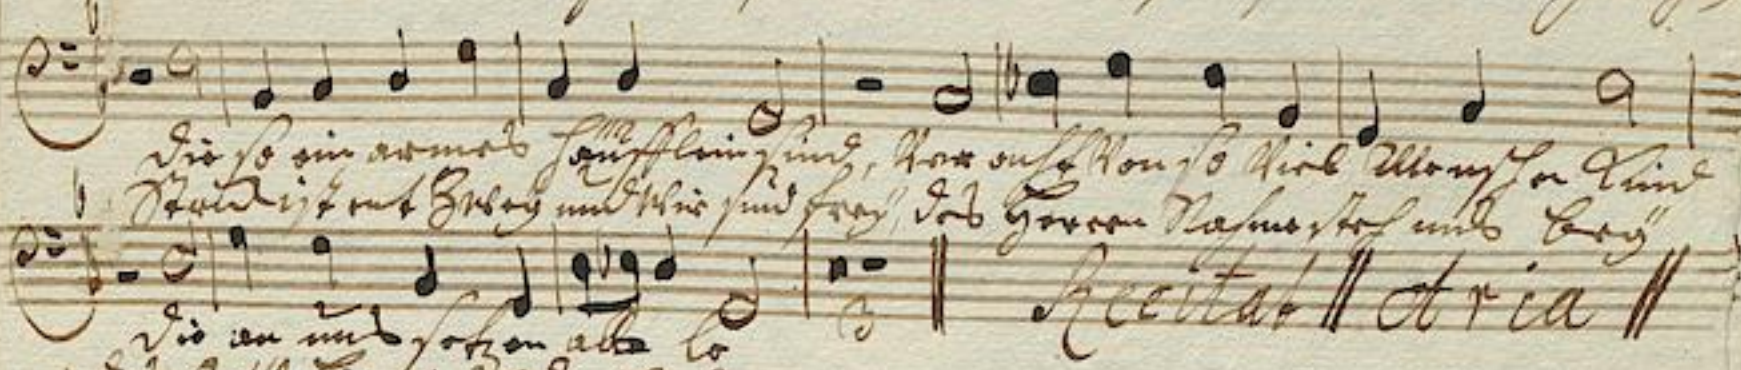 die so ein armes häufflein sind, Veracht Von so Viel Menschen Kind
Strick ist entzwey und Wir sind frey, des Herren Nahme steh uns bey
Recitat || Aria ||
die an uns setzen alle